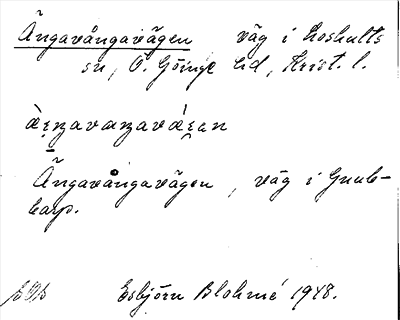 Ängavångavägen väg i Loshults
sn, Ö. Göinge hd, Krist. l.
Ängavångavägen, väg i Gnub-
barp.
Esbjörn Blohmé 1948.